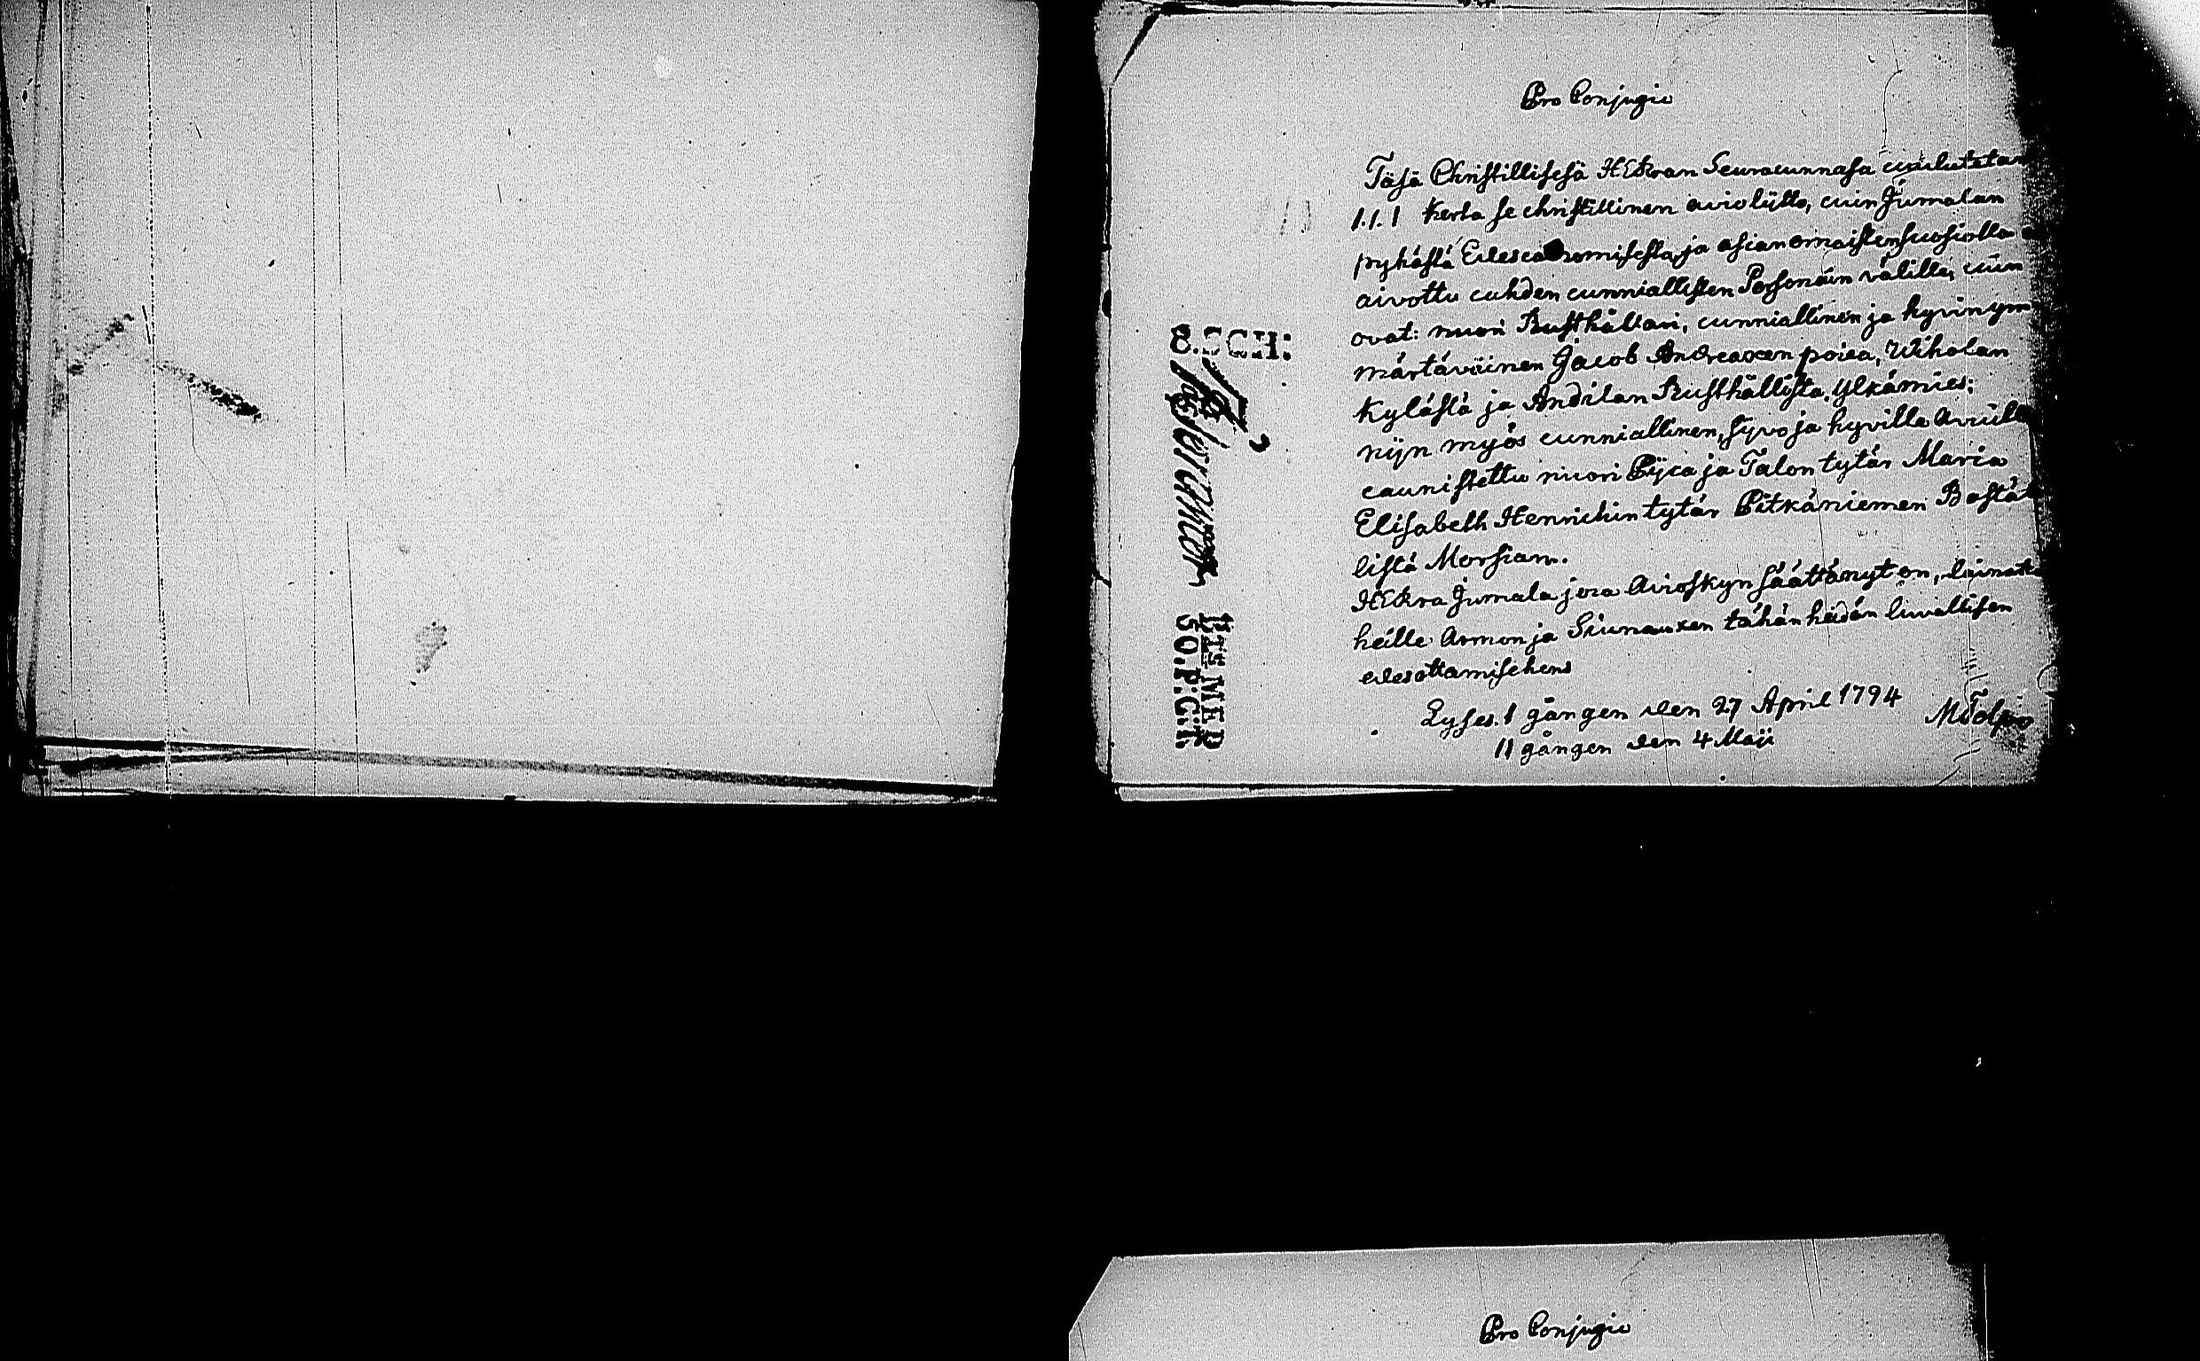 Pro Conjugio
Täsä Christillisesä HERran Seuracunnasa cuulutetan
1.1.1 Kerta se christillinen aviolijtto, cuin Jumalan
pyhästä Edescadzomisesta, ja asianomaisten suosiolla
aivottu cahden cunniallisten Personain välille, cuin
ovat: nuori Rusthållari, cunniallinen ja hyvin ym
märtäväinen Jacob Andreaxen poica, Wiholan
Kylästä ja Andilan Rusthållista, Ylkämies:
nijn myös cunniallinen, syvo ja hyvillä Avuilla
caunistettu nuori Pijca ja Talon tytär Maria
Elisabeth Henrichin tytär Pitkäniemen Bostäl
listä Morsian.
HERra Jumala joca Aviokskyn säättänyt on, lainatk
heille Armon ja Siunauxen tähän heidän luvallisen
edesottamisehens
Lyses. 1 gången den 27 April 1794
M Tolpo
11 gången den 4 Maji
8. SCH:
LITS MED
50. P: Ct:
Pro Conjugio